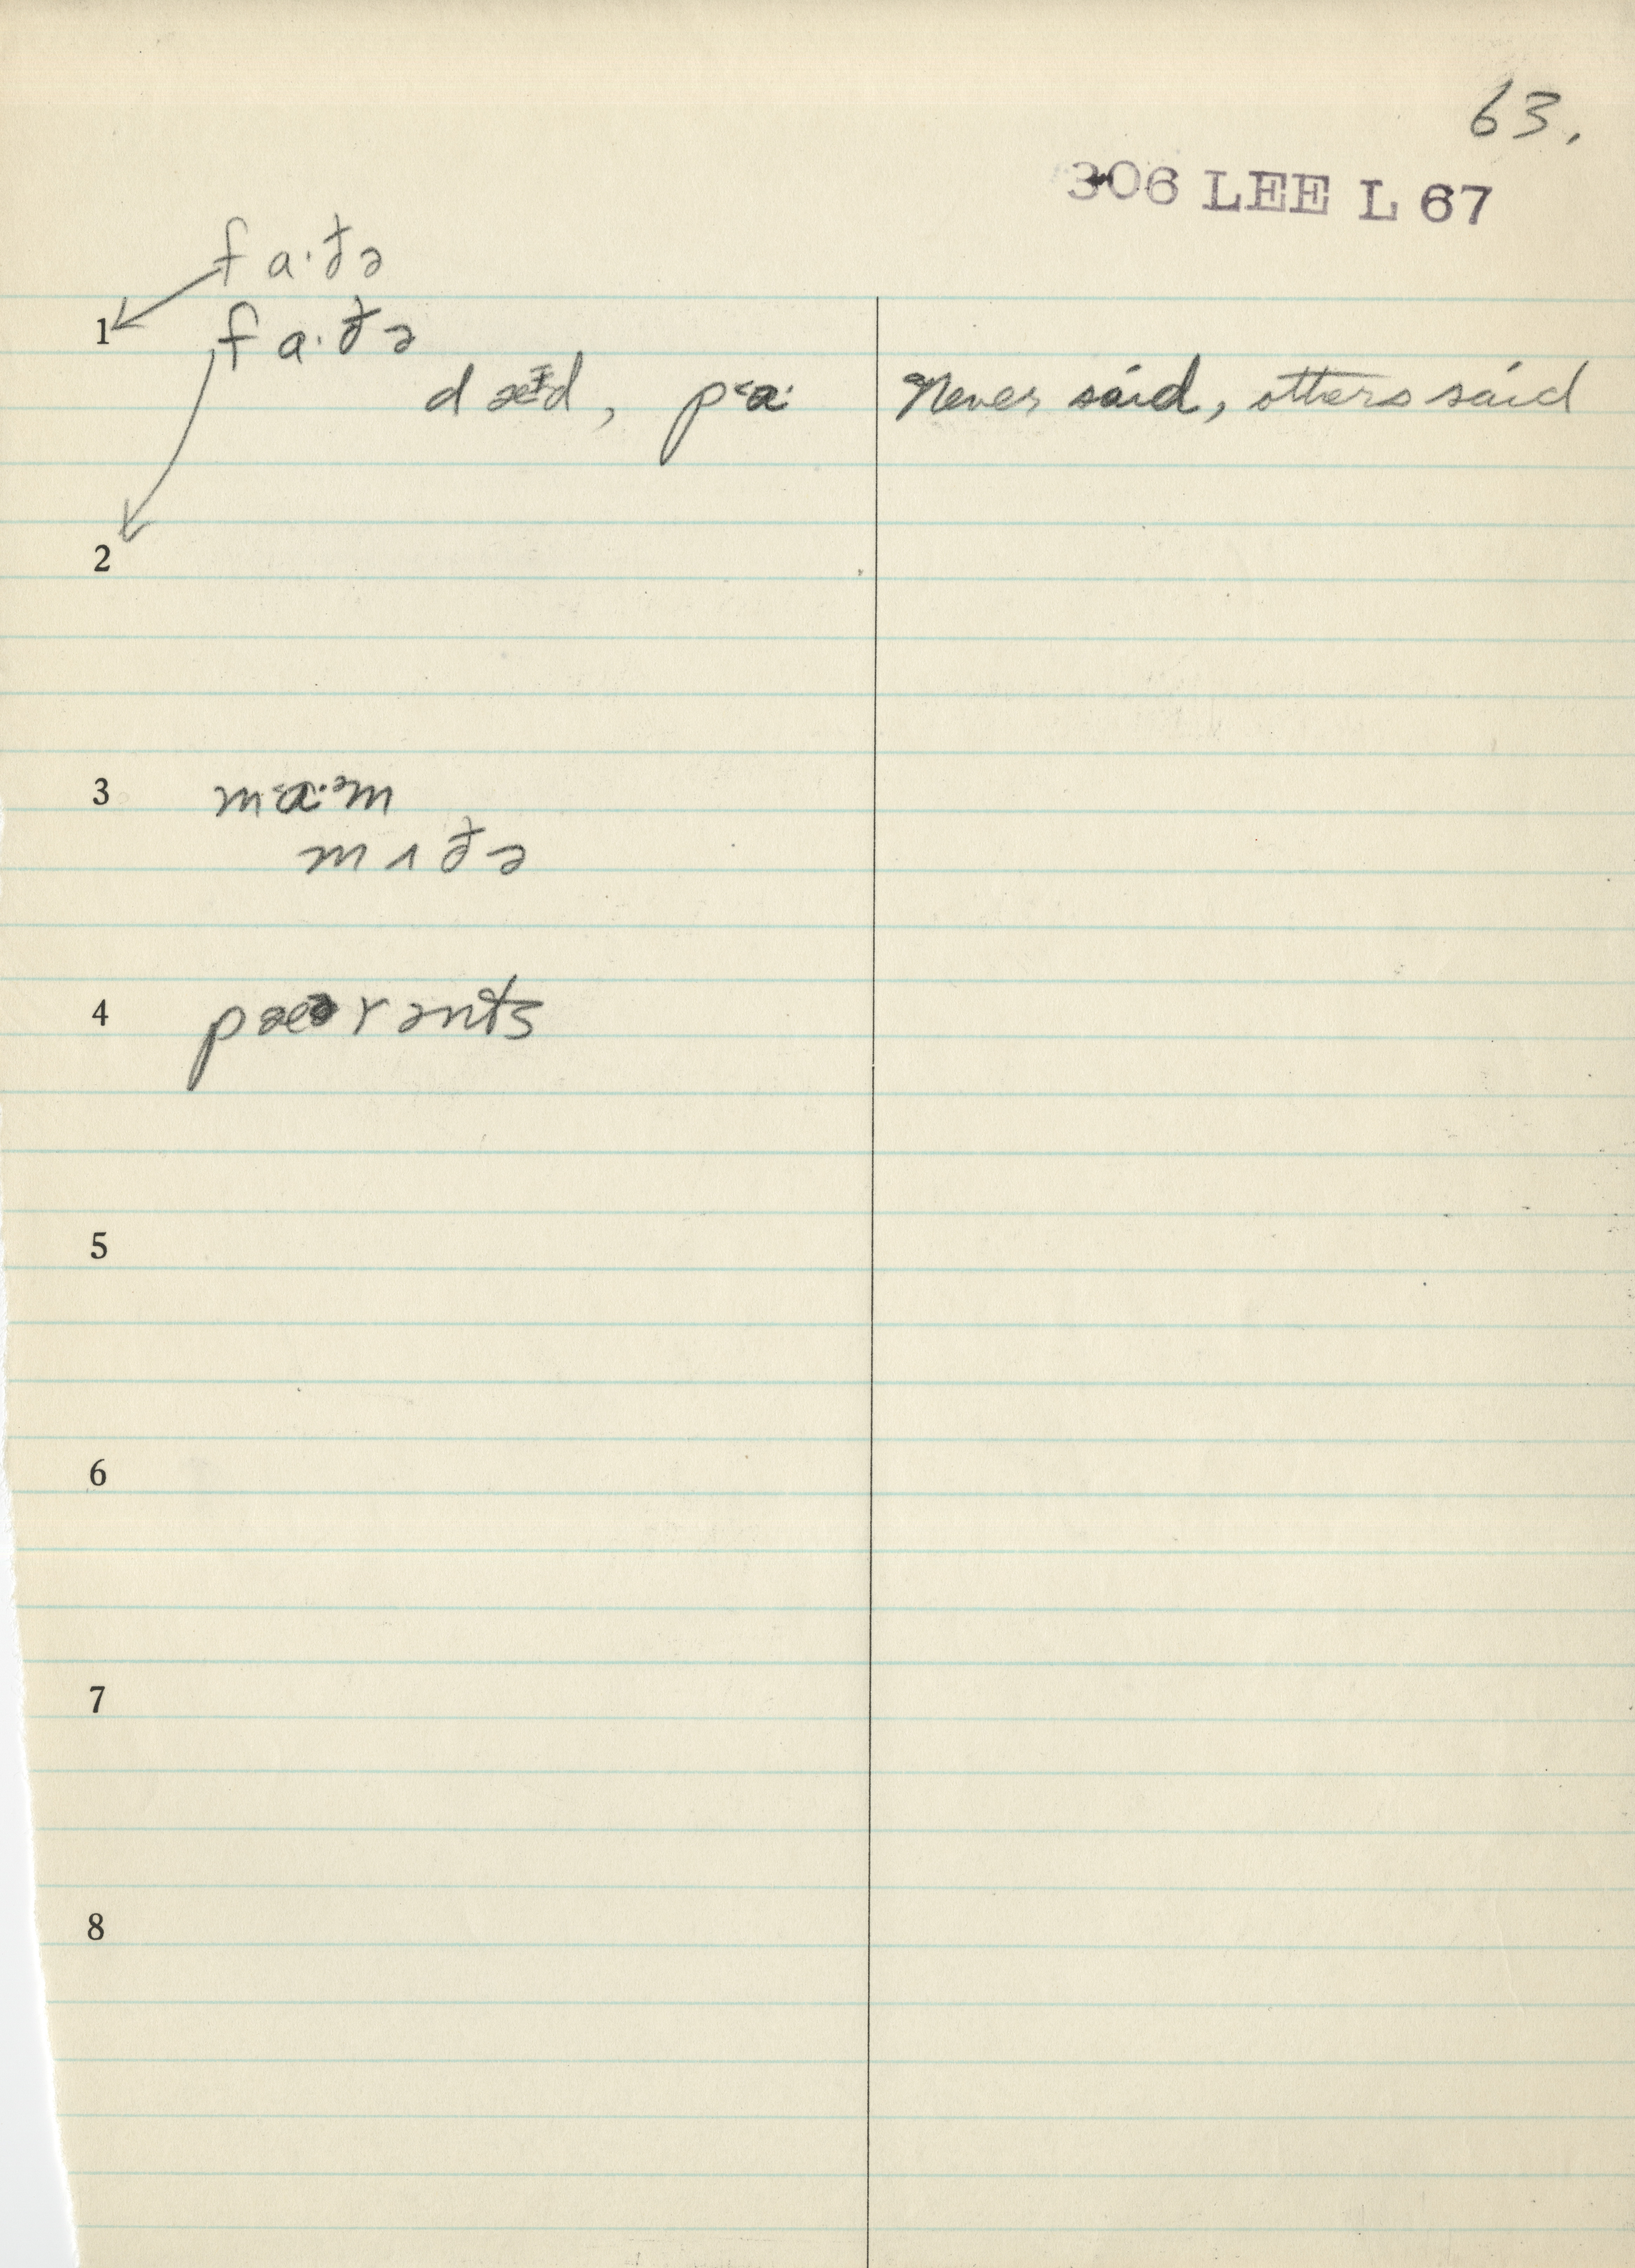 63.
306 LEE L 67
fa·ðə
1 fa·ðə
dæᵻd, p˂a· Never said, others said
2
3 m˂a·ᵊm
mʌðə
4 pæərənts
5
6
7
8